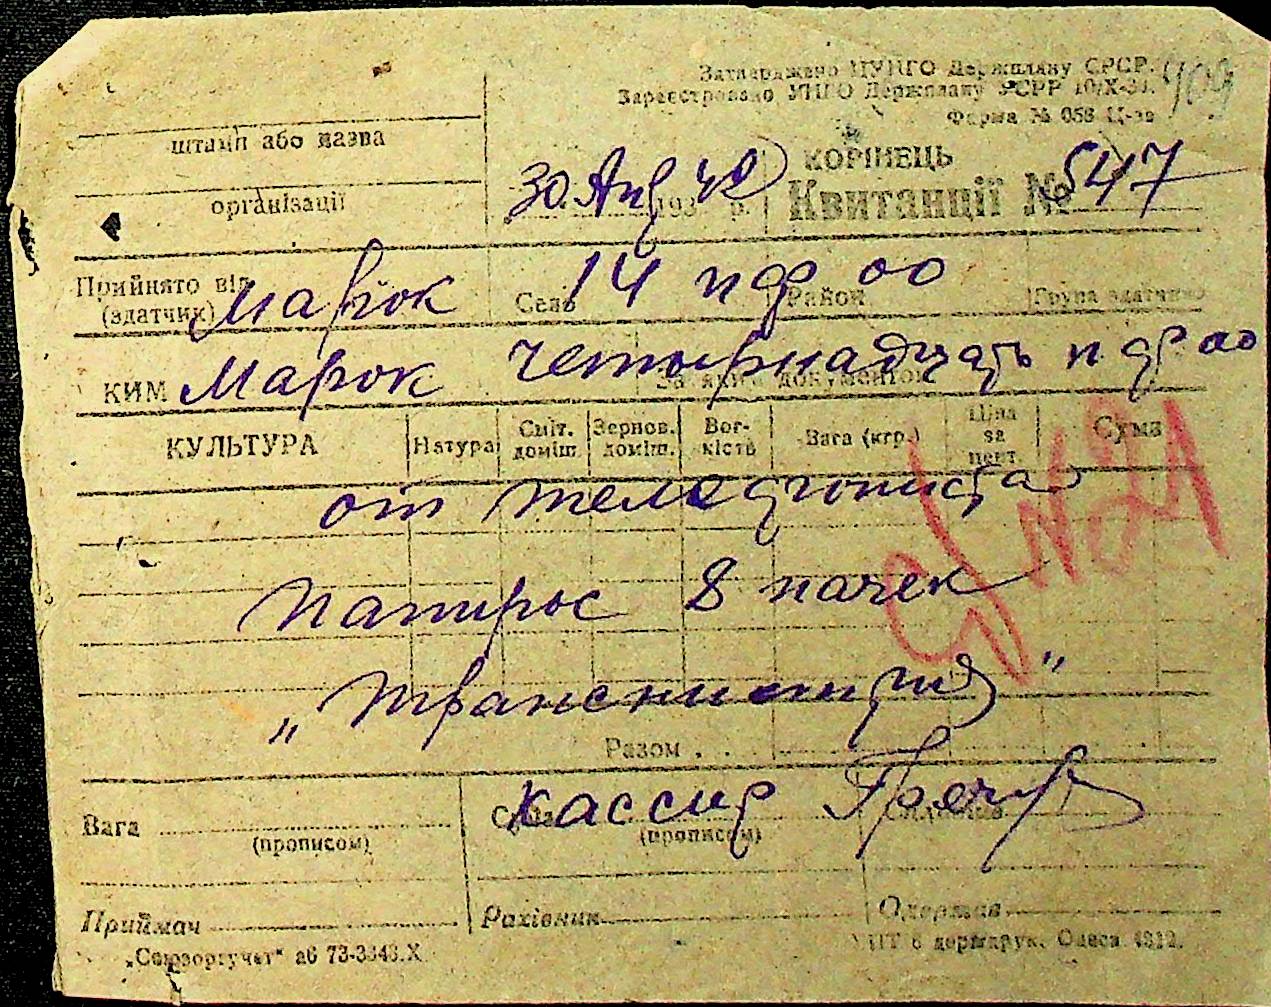 Затверджено ЦУНГО Держплану СРСР.
Зареєстровано УНГО Держплану УСРР 10/X-31.
Форма № 058 Ц-зо
409
штамп або назва
організації
30 Апр 42 193 р.
КОРІНЕЦЬ
Квитанції № 547
Прийнято від
(здатчик) Марок
Село 14 пф 00
Район
Група здатчика
КИМ Марок четырнадцать пф 00
За яким документом
КУЛЬТУРА Натура Сміт. доміш. Зернов. доміш. Вог-кість Вага (кгр.) Ціна за цент. Сума
от
папирос 8 пачек
„Транснистрия"
Разом . .
кассир
Вага
(прописом)
(прописом)
Приймач Рахівник Одержав
„Союзоргучет" аб 73-3343.X
Одеса